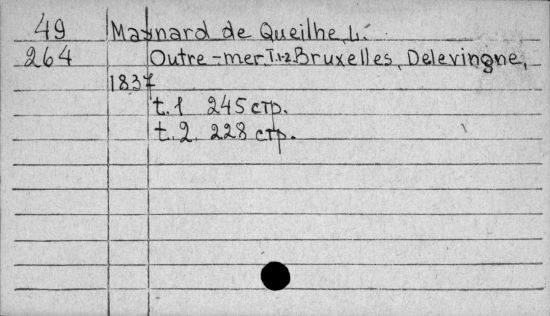 49 Maynard de Queilhe, L.
264 Outre-mer T.1-2. Bruxelles, Delevingne,
1837
t. 1 245 стр.
t. 2. 228 стр.